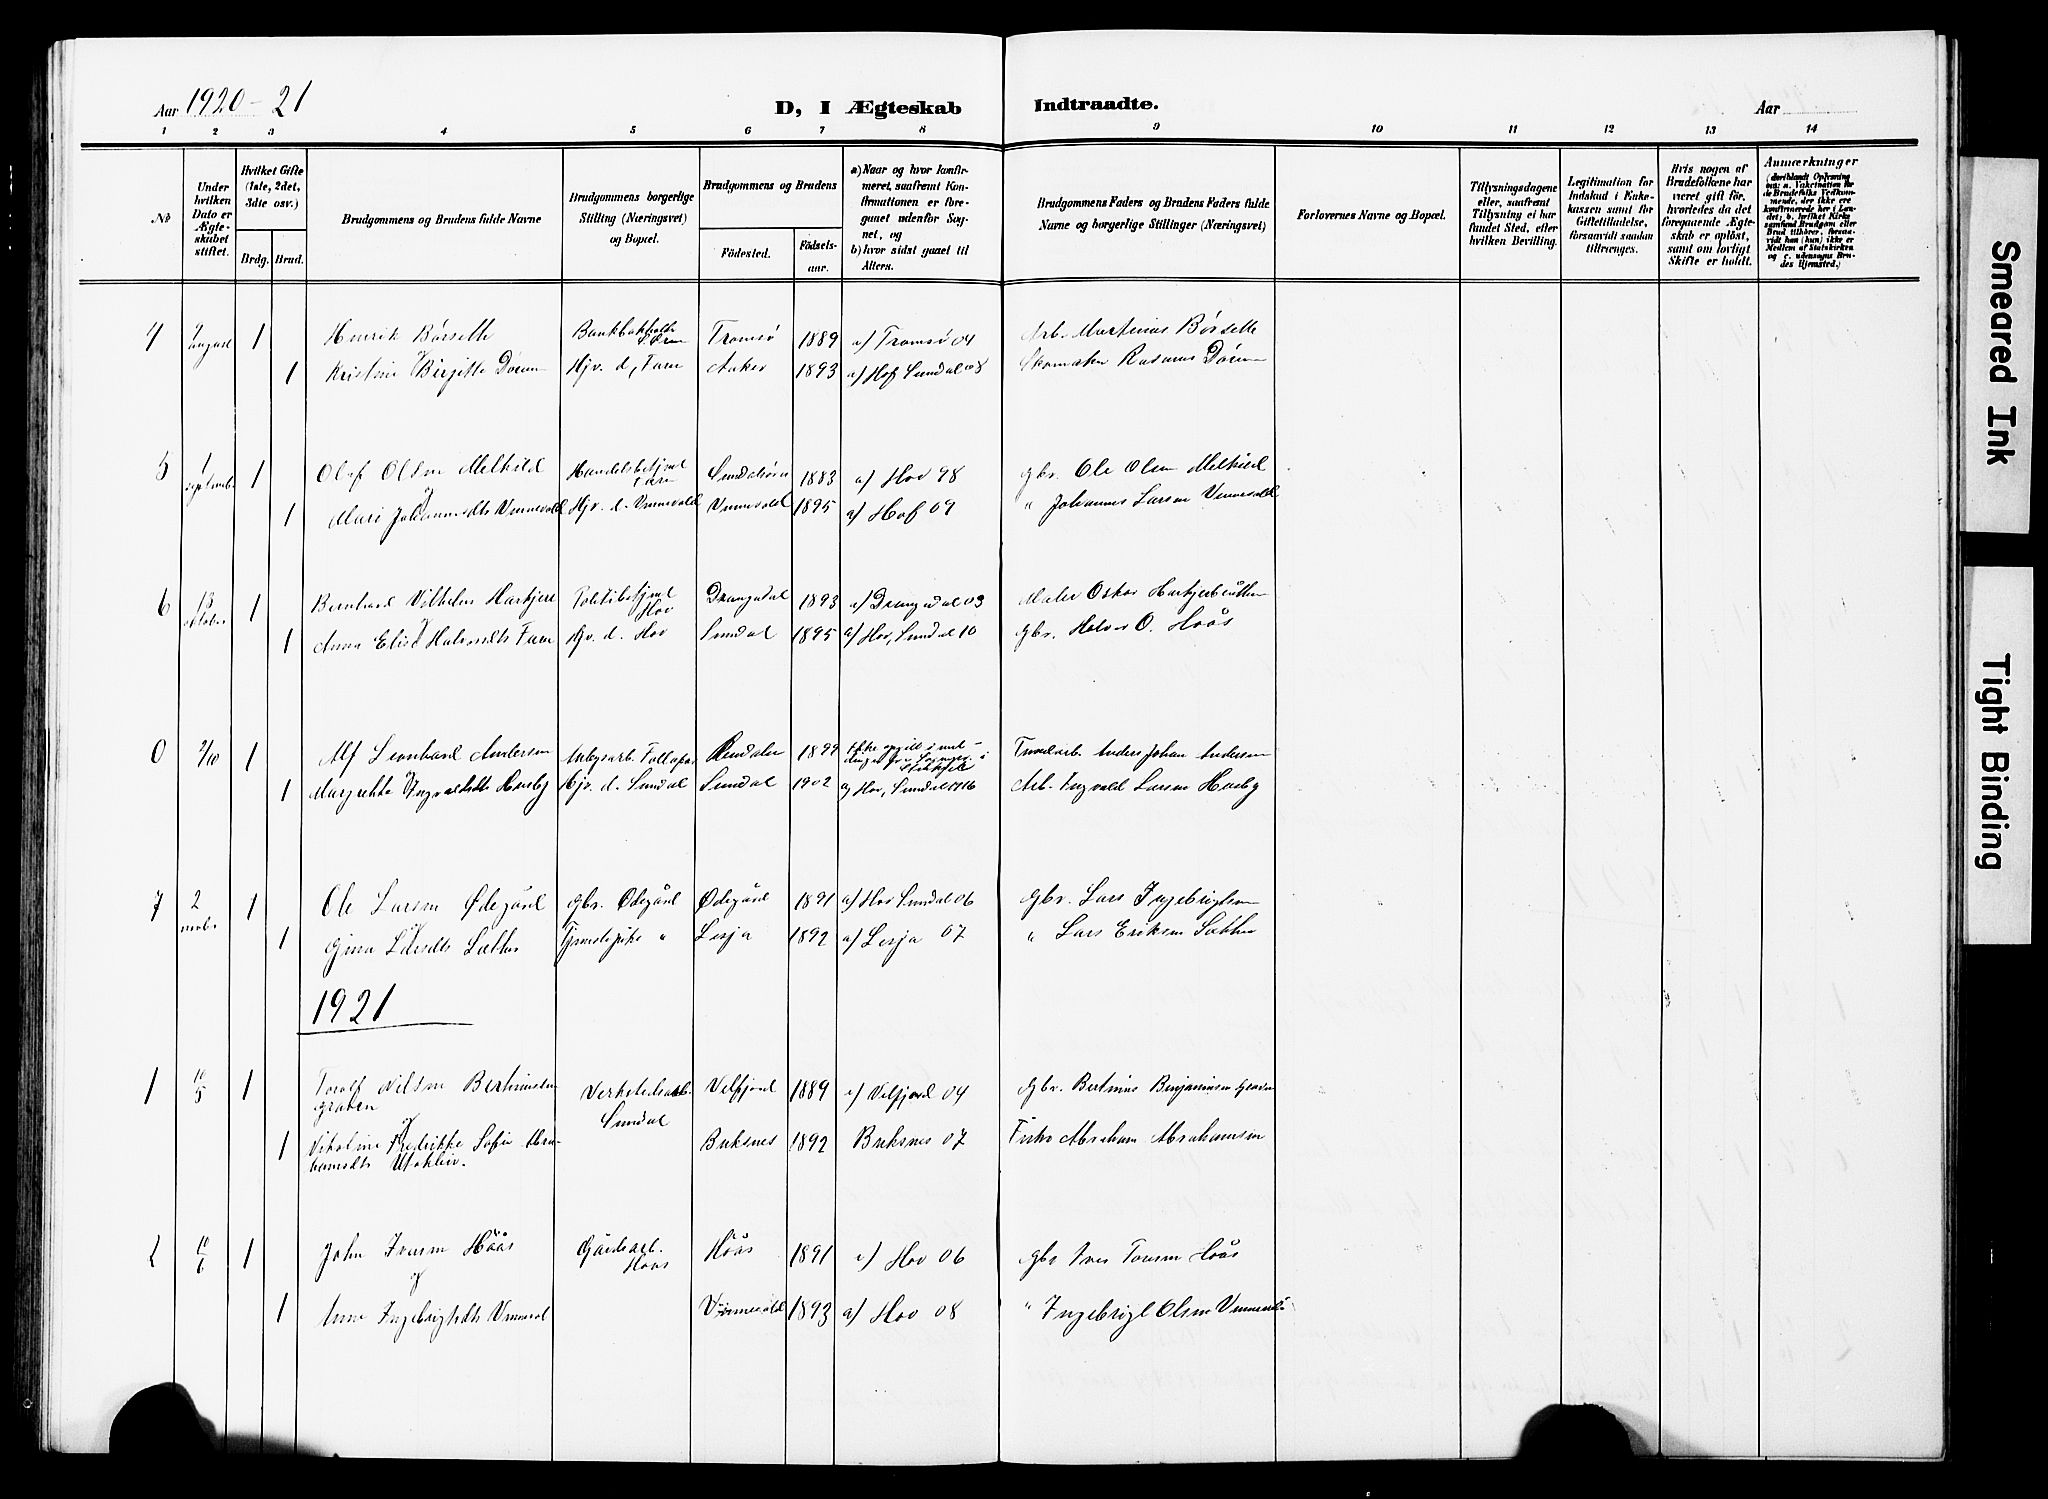 Aar 1920-21
D, I Ægteskab Indtraadte.
Aar
1 2 3 4 5 6 7 8 9 10 11 12 13 14
No
Under hvilken Dato er Ægteskabet stiftet.
Hvilket Gifte (1ste, 2det, 3dte osv.)
Brdg. Brud.
Brudgommens og Brudens fulde Navne
Brudgommens borgerlige Stilling (Næringsvei) og Bopæl.
Brudgommens og Brudens
Födested.
Födselsaar.
a) Naar og hvor konfirmeret, saafremt Konfirmationen er foregaaet udenfor Sognet, og
b) hvor sidst gaaet til Alters.
Brudgommens Faders og Brudens Faders fulde Navne og borgerlige Stillinger (Næringsvei)
Forlovernes Navne og Bopæl.
Tillysningsdagene eller, saafremt Tillysning ei har fundet Sted, efter hvilken Bevilling.
Legitimation for Indskud i Enkekassen samt for Giftetilladelse, forsaavidt saadan tiltrænges.
Hvis nogen af Brudefolkene har været gift før, hvorledes da det foregaaende Ægteskab er opløst, samt om lovligt Skifte er holdt.
Anmærkninger
(deriblandt Oplysning om: a. Vaksination for de Brudefolks Vedkommende, der ikke ere konfirmerede her i Landet; b. hvilket Kirkesamfund Brudgom eller Brud tilhører, forsaavidt han (hun) ikke er Medlem af Statskirken og c. udensogns Brudes Hjemsted.)
4 7 august 1 Henrik Børseth Tromsø 1889 a) Tromsø 04 Arb. Martinus Børseth
1 Kristine Birgitte Dørum Hjv. d, Furu Anker 1893 a) Hof Sundal 08 Skomaker Rasmus Dørum
5 1 septembr 1 Olaf Olsen Melkild Handelsbetjent Sundalsøra 1883 a) Hov 98 Gbr. Ole Olsen Melkild
1 Mari Johannesdtr Vennevold Hjv. d. Vennevold Vennevold 1895 a) Hof 09 " Johannes Larsen Vennevold
6 13 oktober 1 Bernhard Vilhelm Politibetjent Hov Drangedal 1893 a) Drangedal 03 Maler Oskar
1 Anna Elise Halvorsdtr Furu Hjv. d. Hov Sundal 1895 a) Hov, Sundal 10 Gbr. Halvor O. Hoås
0 2/10 1 Alf Leonhard Andersen Rendalen 1899 Anders Johan Andersen
1 Margrethe Ingvaldsdtr Husby Hjv. d. Sundal Sundal 1902 a) Hov, Sundal 1916 Arb. Ingvald Larsen Husby
7 2 novbr 1 Ole Larsen Ødegård Gbr. Ødegård Ødegård 1891 a) Hov Sundal 06 Gbr. Lars Ingebrigtsen
1 Gina Larsdtr Sæther Tjenestepike " Lesja 1892 a) Lesja 07 " Lars Eriksen Sæther
1921
1 10/5 1 Toralf Nilsen Bertinussen Graven Verkstedsarb. Sundal Velfjord 1889 a) Velfjord 04 Gbr. Bertinus Benjaminsen Graven
1 Nikoline Fredrikke Sofie Abrahamsdtr Utakleiv. Buksnes 1892 Buksnes 07 Fisker Abraham Abrahamsen
2 10/6 1 John Iversen Hoås Gårdsarb. Hoås Hoås 1891 a) Hov 06 Gbr Iver Toresen Hoås
1 Anne Ingebrigtsdtr Vennevol Vennevold 1893 a) Hov 08 " Ingebrigt Olsen Vennevold
Smeared Ink
Tight Binding